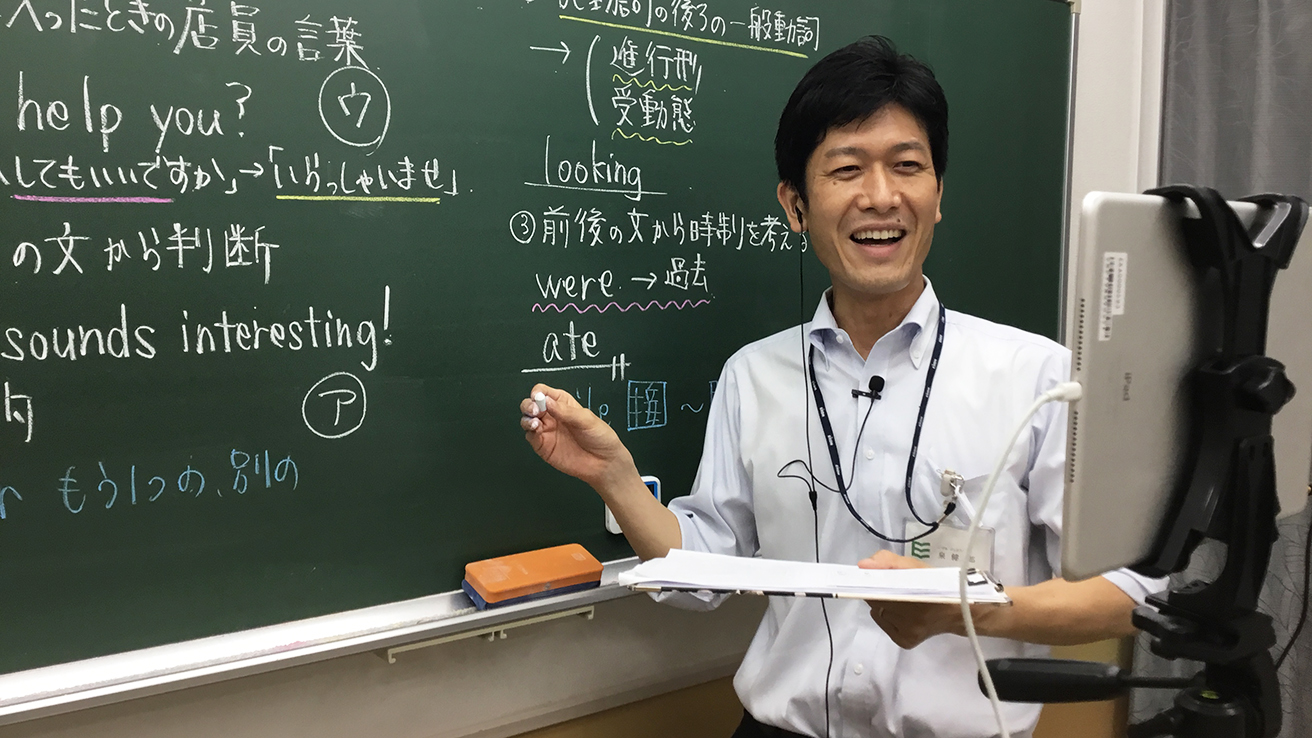 入ったときの店員の言葉
help you? ㋒
してもいいですか」→「いらっしゃいませ」
の文から判断
sounds interesting!
㋐
もう1つの、別の
の後ろの一般動詞
→ 進行形
受動態
looking
③前後の文から時制を考え
were → 過去
ate
接 ～
iPad